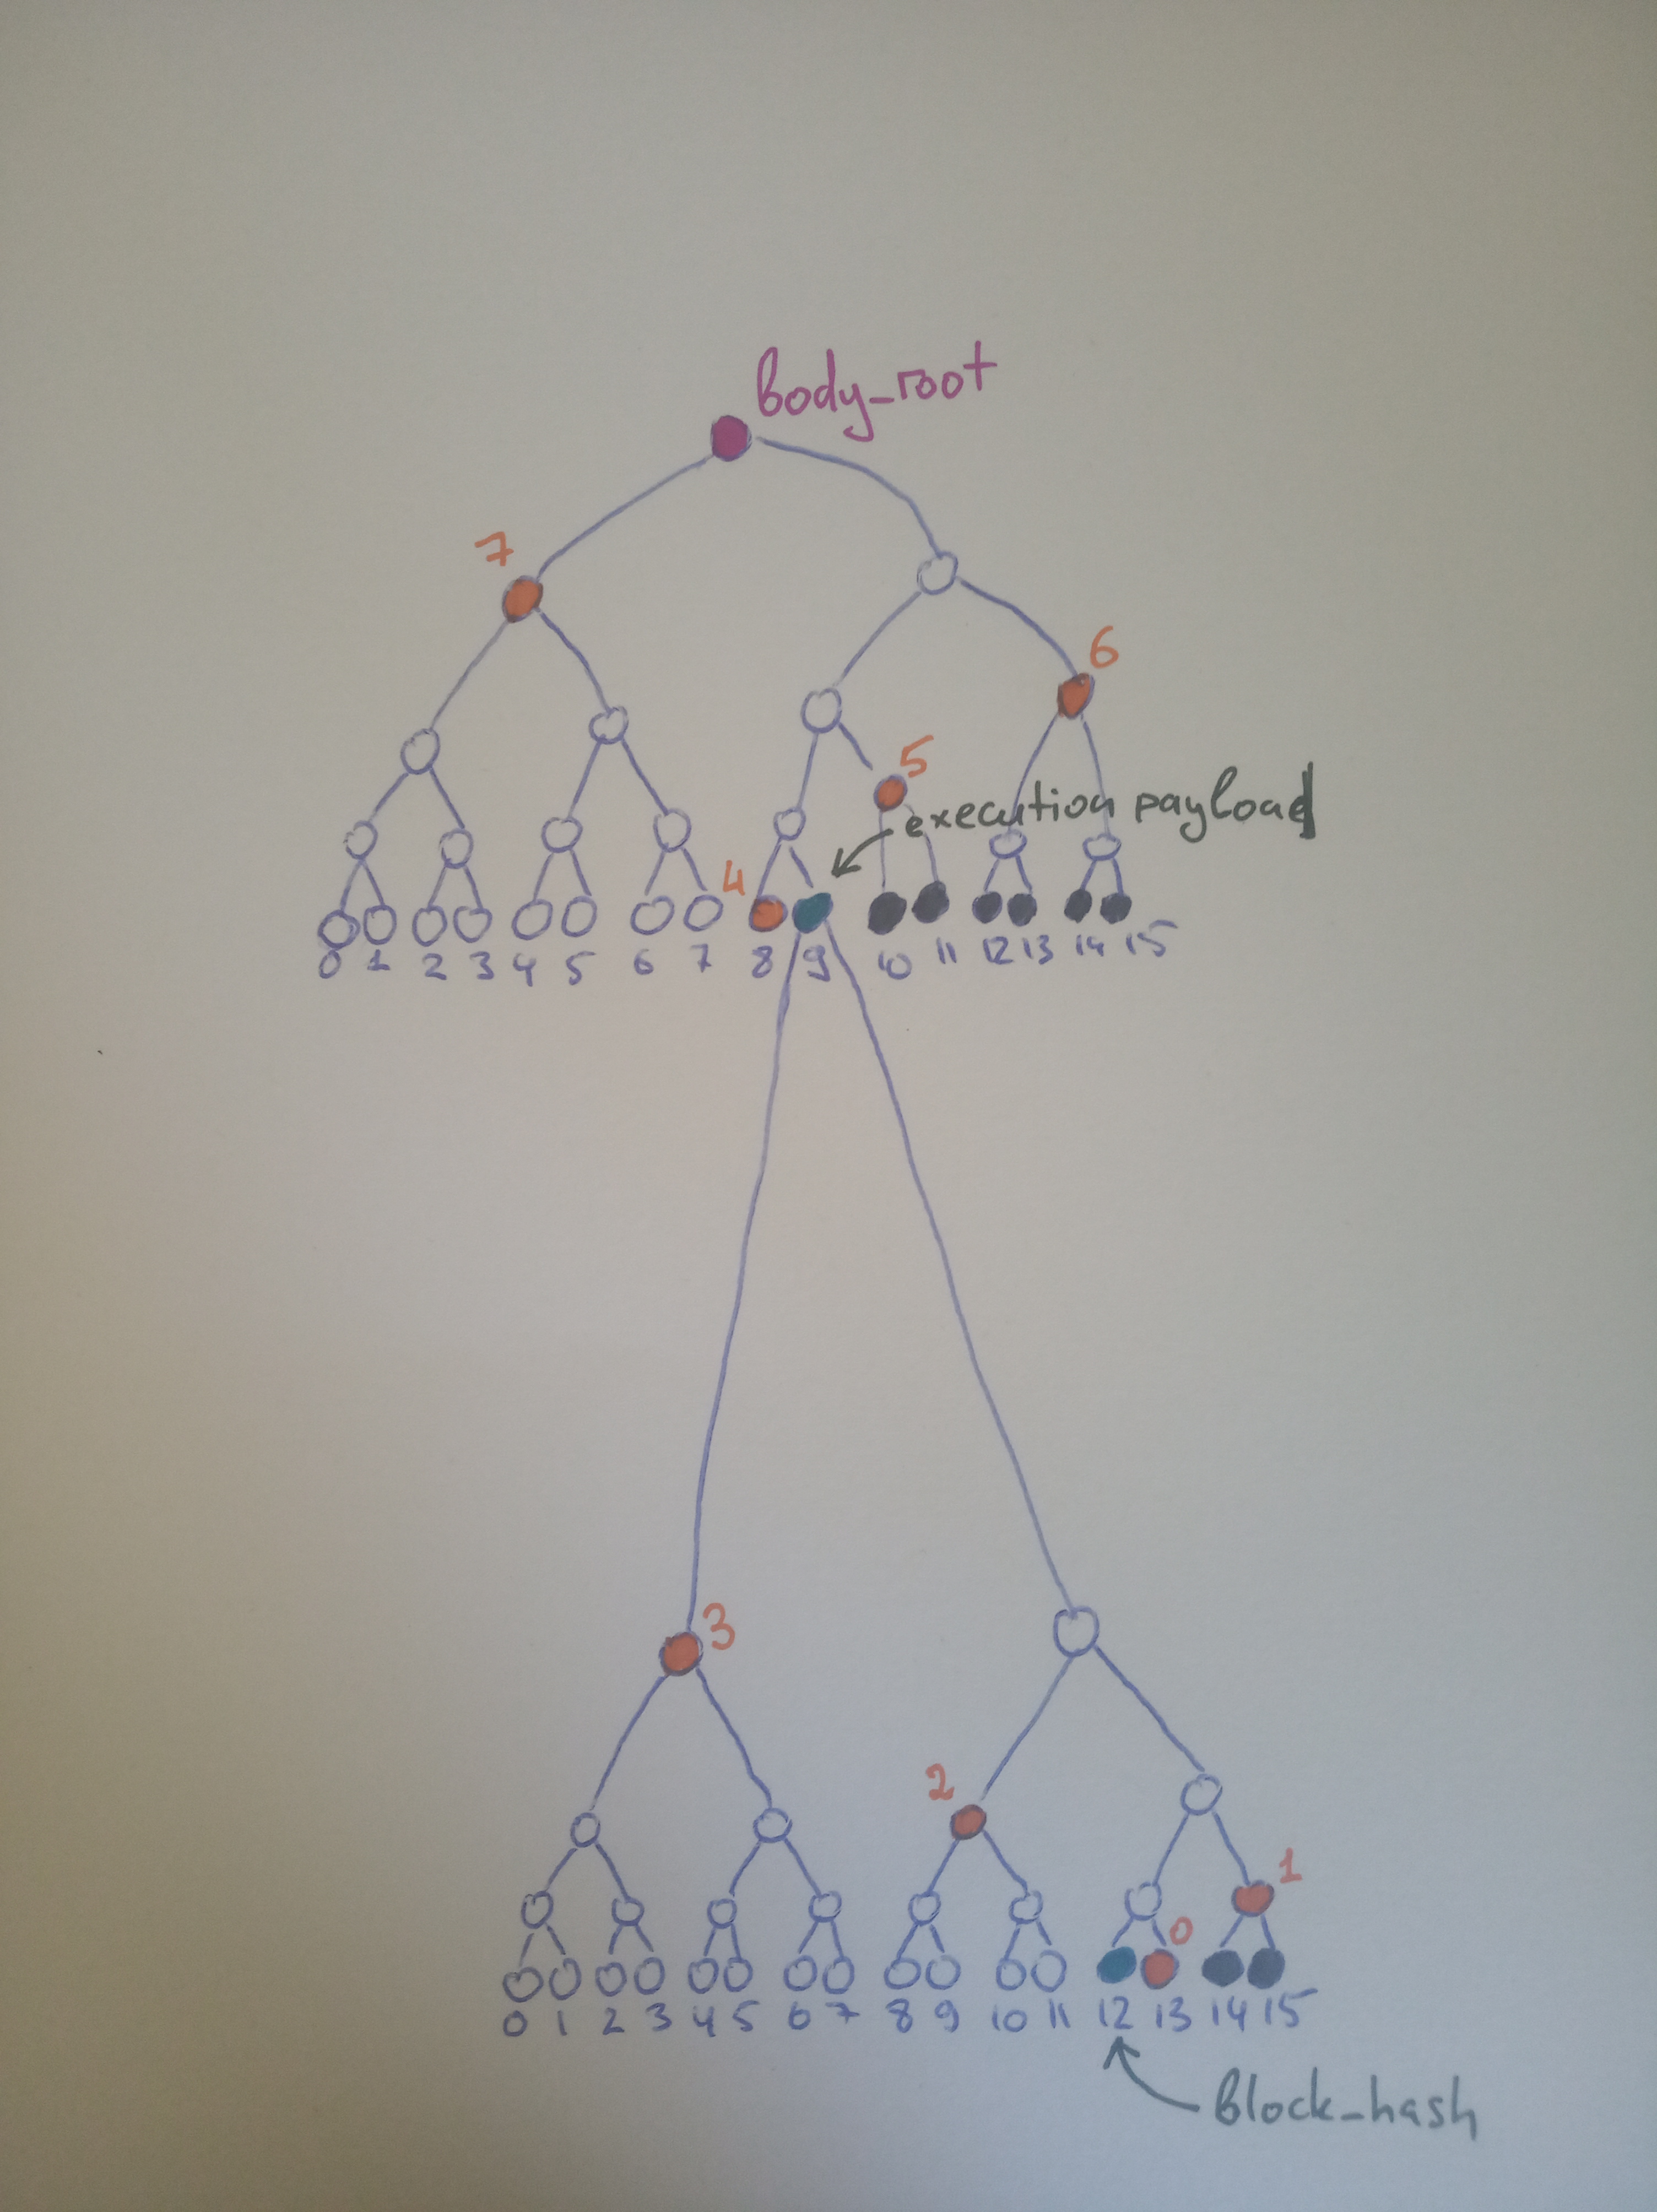 body_root
7
6
5
execution payload
4
0 1 2 3 4 5 6 7 8 9 10 11 12 13 14 15
3
2
1
0
0 1 2 3 4 5 6 7 8 9 10 11 12 13 14 15
block_hash